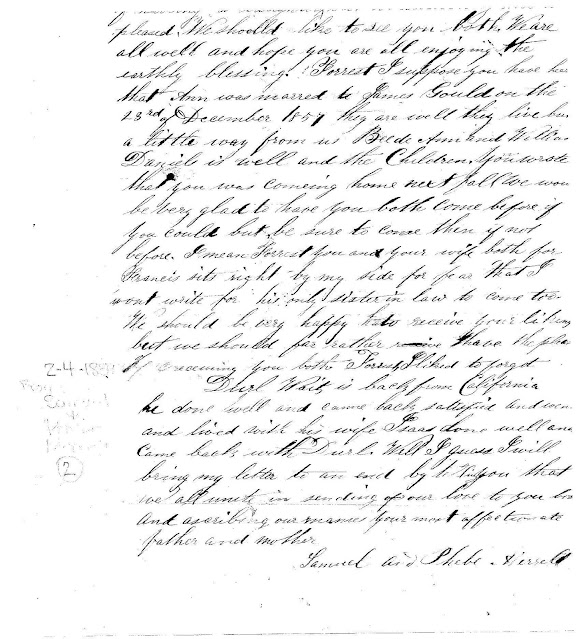 pleased. We shoulld like to see you both. We are
all well and hope you are all enjoying the
earthly blessing. Forrest I suppose you have
that Ann was marred to James Gould on the
23rd of December 1857 they are well they live
a little way from us Beede Ann and
Daniels is well and the Children. You wrote
that you was comeing home next fall We
be very glad to have you both Come before if
you could but be sure to come then if not
before. I mean Forrest you and your wife both for
Francis sits right by my side for fear that I
wont write for his only sister in law to come too
We should be very happy to receive your
but we should far rather have the
of receiveing you both Forrest I liked to forgot
Durl Wait is back from California
he done well and came back satisfied and
and lived with his wife Isaac done well
Came back with Durl. Well I guess I will
bring my letter to an end by that
we all unite in sending our love to you
and ascribing our names your most affectionate
father and mother
Samuel and Phebe
2-4-18
Samuel
2